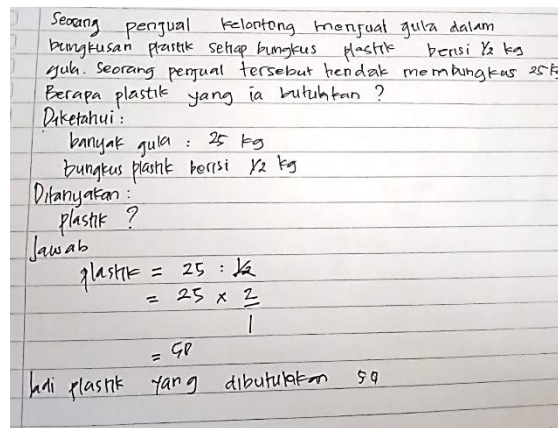 Seorang penjual kelontong menjual gula dalam
bungkusan plastik setiap bungkus plastik berisi 1/2 kg
gula. Seorang penjual tersebut hendak membungkus 25 k
Berapa plastik yang ia butuhkan ?
Diketahui :
banyak gula : 25 kg
bungkus plastik berisi 1/2 kg
Ditanyakan :
plastik ?
Jawab
plastik = 25 : 1/2
= 25 x 2
1
= 50
Jadi plastik yang dibutuhkan 50